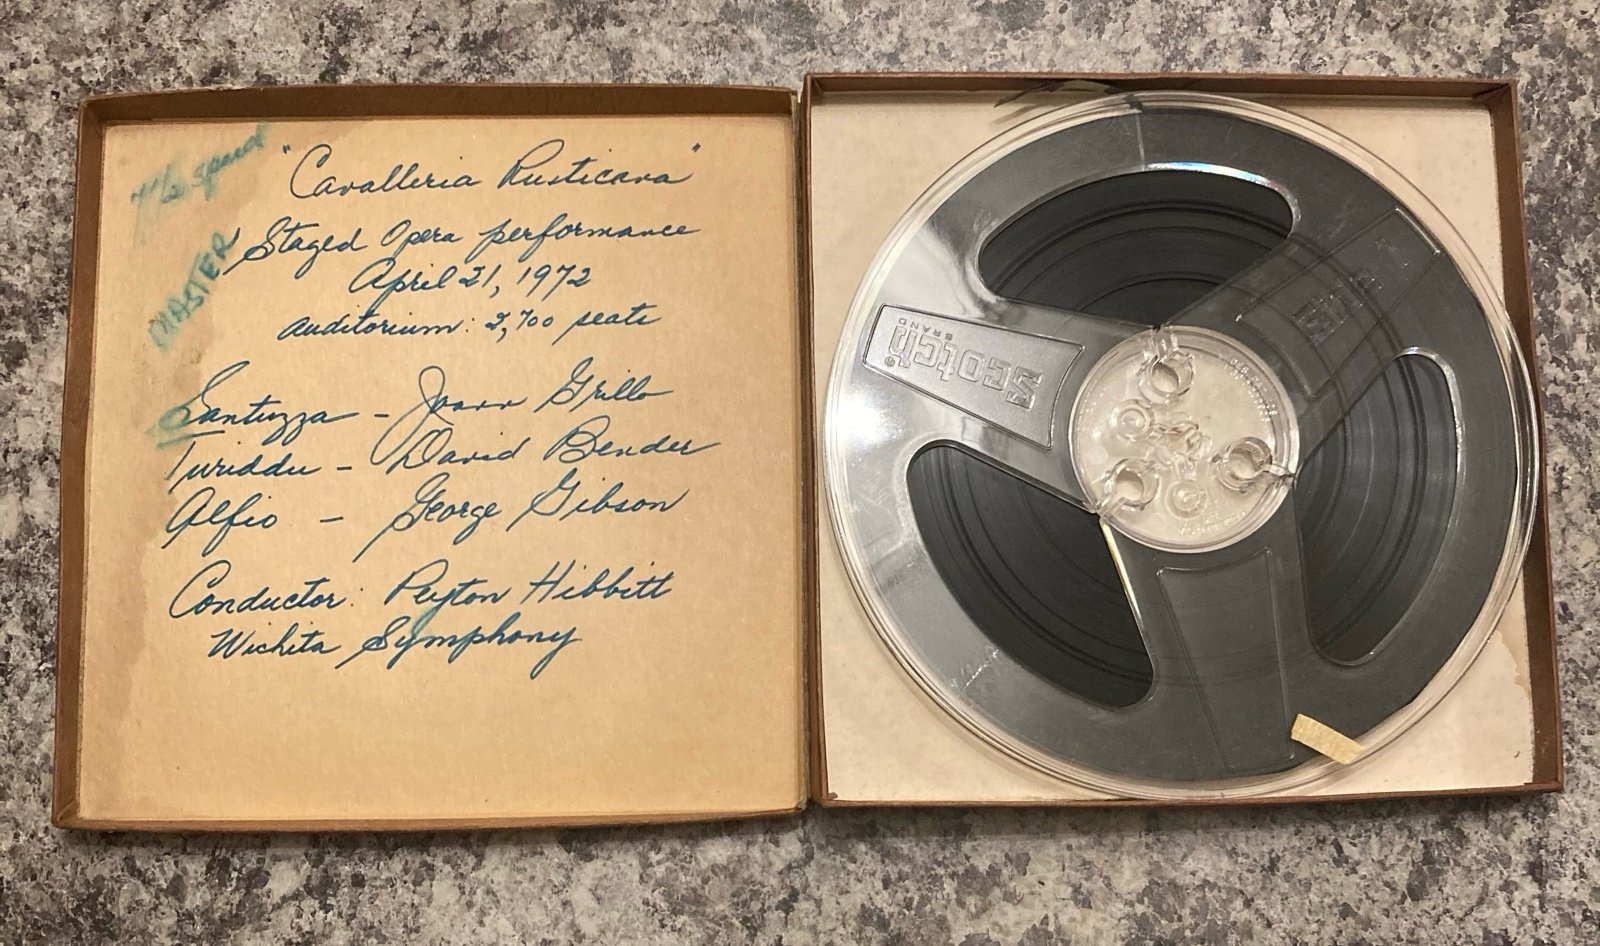 7 1/2 speed
MASTER
"Cavalleria Rusticana"
Staged Opera performance
April 21, 1972
Auditorium: 2,700 seats
Santuzza - Joann Grillo
Turiddu - David Bender
Alfio - George Gibson
Conductor: Peyton Hibbitt
Wichita Symphony
Scotch®
BRAND